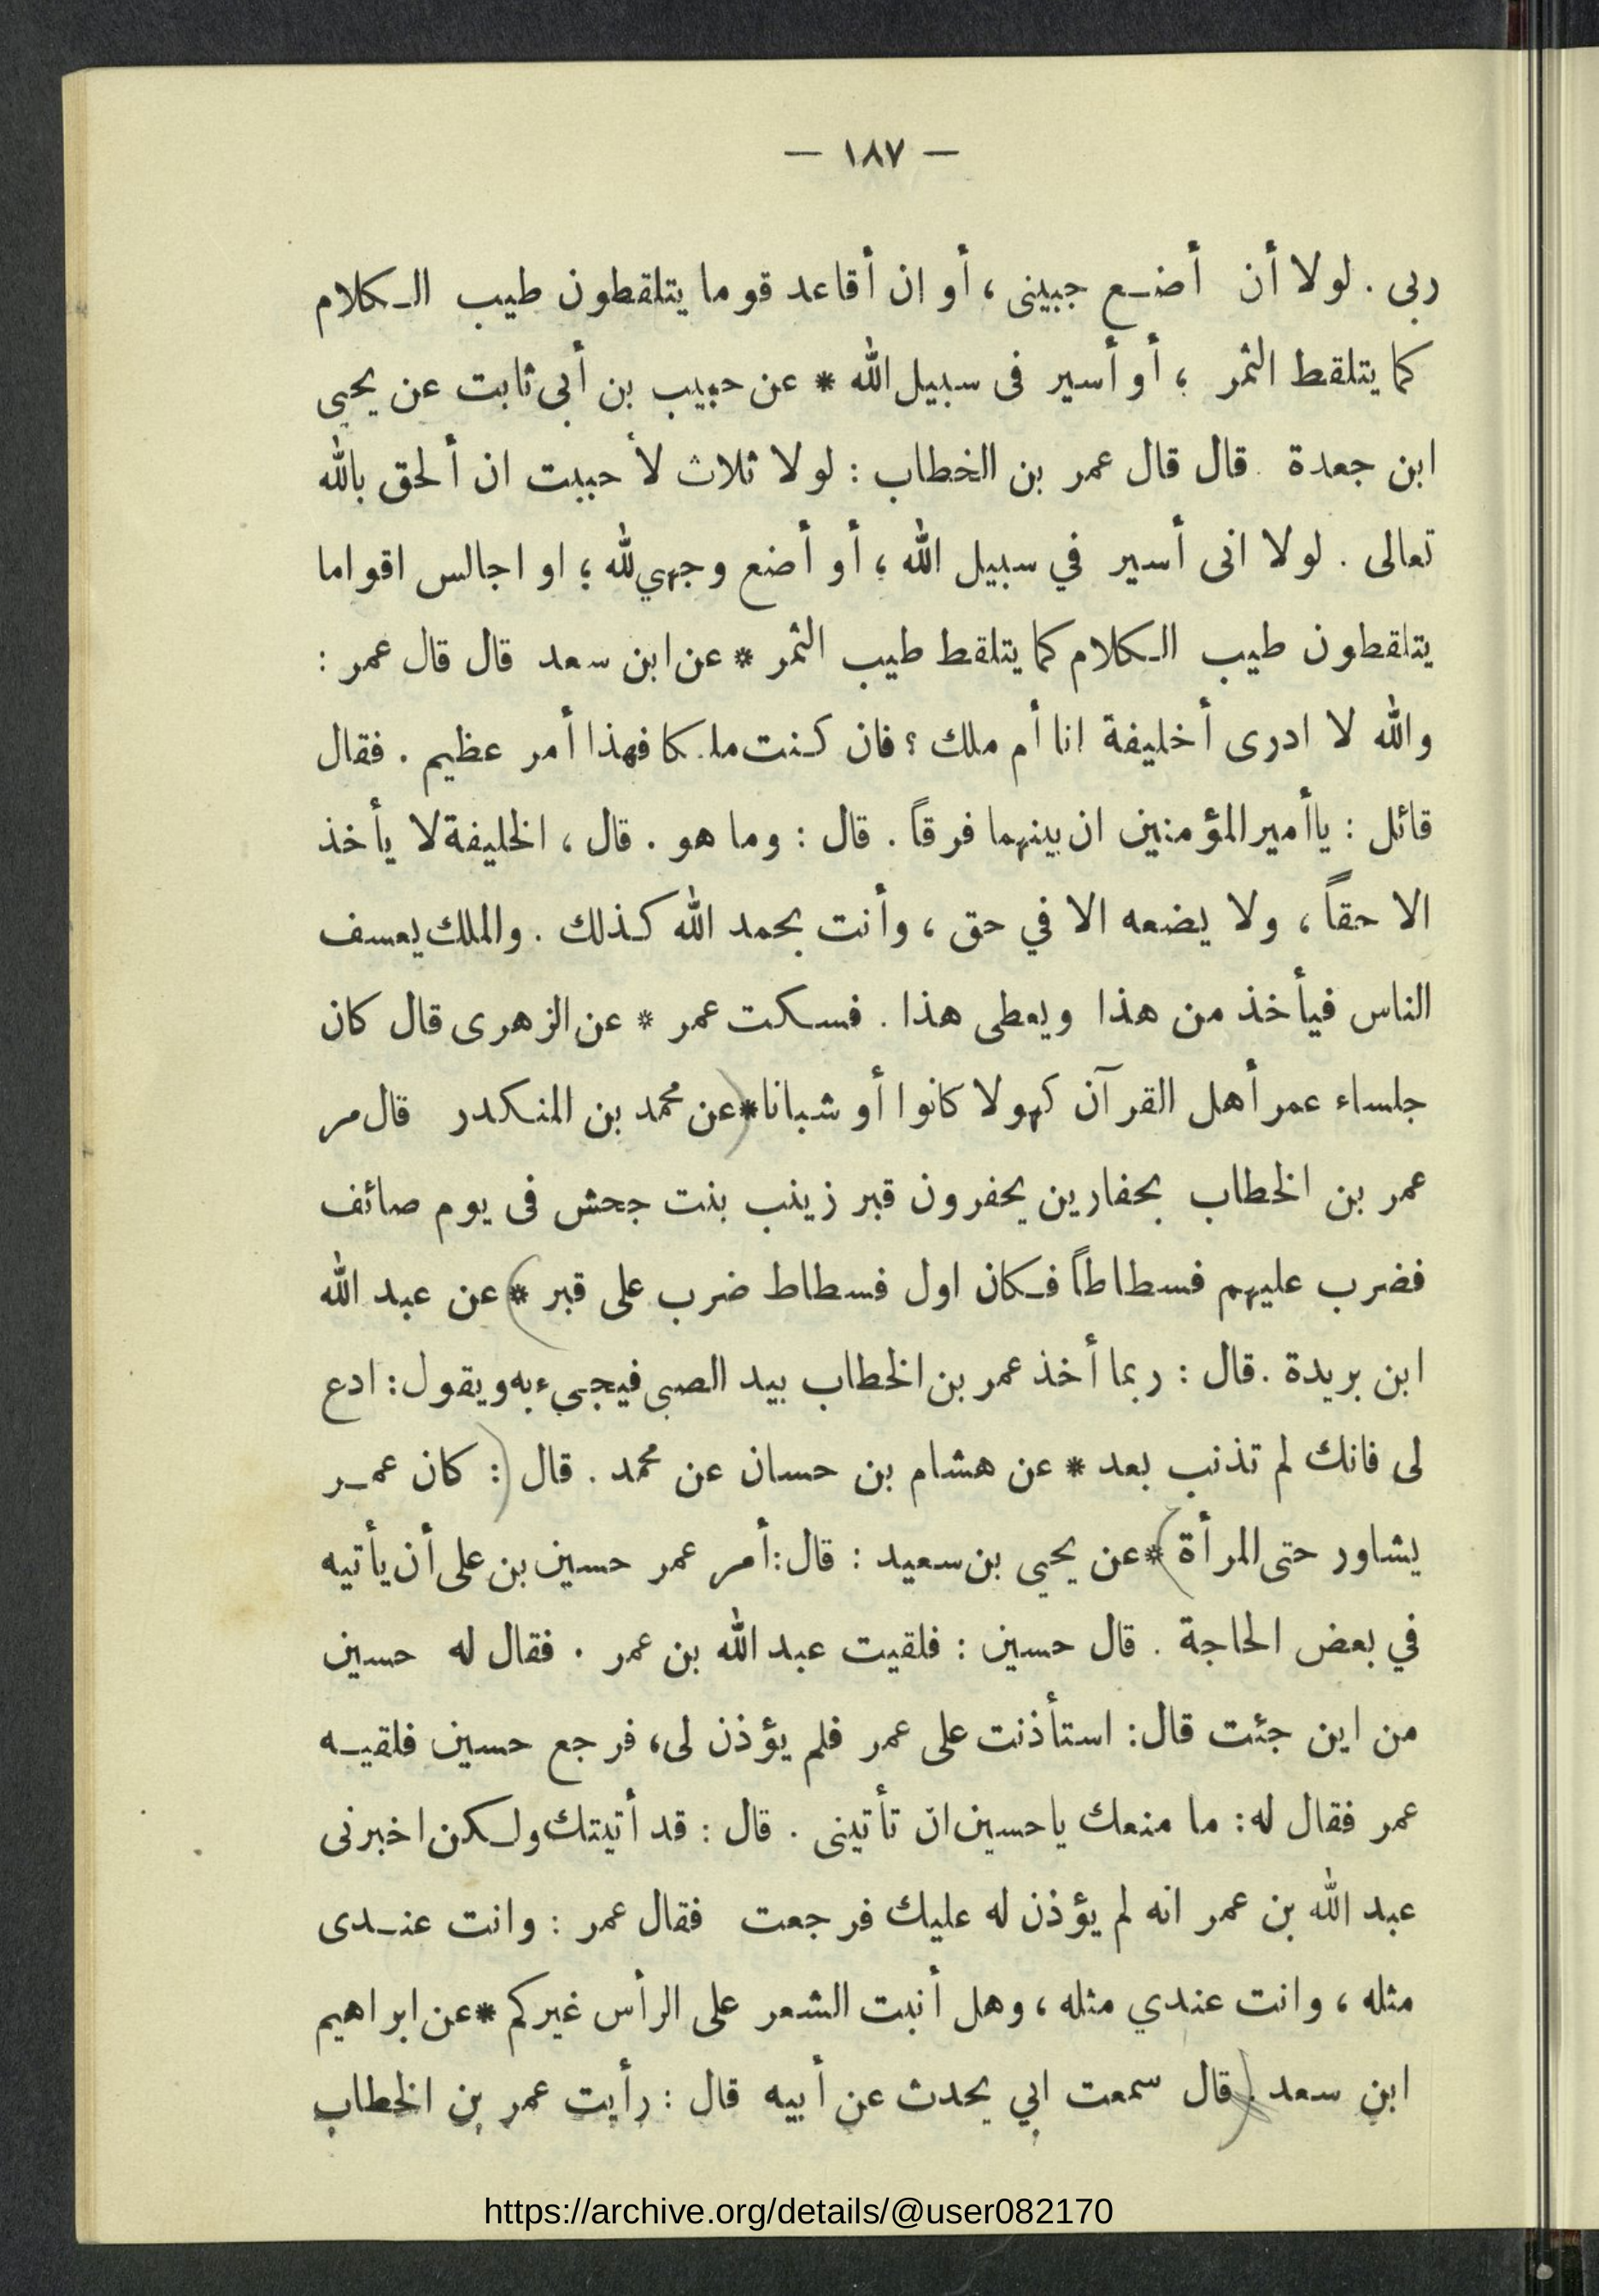 — ١٨٧ —
ربى . لولا أن أضع جبينى ، أو ان أقاعد قوما يتلقطون طيب الكلام
كما يتلقط الثمر ؛ أو أسير فى سبيل الله * عن حبيب بن أبى ثابت عن يحيى
ابن جعدة . قال قال عمر بن الخطاب : لولا ثلاث لأحببت ان ألحق بالله
تعالى . لولا انى أسير في سبيل الله ؛ أو أضع وجهي لله ؛ او اجالس اقواما
يتلقطون طيب الكلام كما يتلقط طيب الثمر * عن ابن سعد قال قال عمر :
والله لا ادرى أخليفة انا أم ملك ؟ فان كنت ملكا فهذا أمر عظيم . فقال
قائل : ياأمير المؤمنين ان بينهما فرقاً . قال : وما هو . قال ، الخليفة لا يأخذ
الا حقاً ، ولا يضعه الا في حق ، وأنت بحمد الله كذلك . والملك يعسف
الناس فيأخذ من هذا ويعطى هذا . فسكت عمر * عن الزهرى قال كان
جلساء عمر أهل القرآن كهولا كانوا أو شبانا * (عن محمد بن المنكدر قال مر
عمر بن الخطاب بحفارين يحفرون قبر زينب بنت جحش فى يوم صائف
فضرب عليهم فسطاطاً فكان اول فسطاط ضرب على قبر *) عن عبد الله
ابن بريدة . قال : ربما أخذ عمر بن الخطاب بيد الصبى فيجىء به ويقول : ادع
لى فانك لم تذنب بعد * عن هشام بن حسان عن محمد . قال (: كان عمر
يشاور حتى المرأة) * عن يحيى بن سعيد : قال : أمر عمر حسين بن على أن يأتيه
في بعض الحاجة . قال حسين : فلقيت عبد الله بن عمر . فقال له حسين
من اين جئت قال : استأذنت على عمر فلم يؤذن لى ، فرجع حسين فلقيه
عمر فقال له : ما منعك ياحسين ان تأتينى . قال : قد أتيتك ولكن اخبرنى
عبد الله بن عمر انه لم يؤذن له عليك فرجعت فقال عمر : وانت عندى
مثله ، وانت عندي مثله ، وهل أنبت الشعر على الرأس غيركم * عن ابراهيم
ابن سعد . (قال سمعت ابي يحدث عن أبيه قال : رأيت عمر بن الخطاب
https://archive.org/details/@user082170